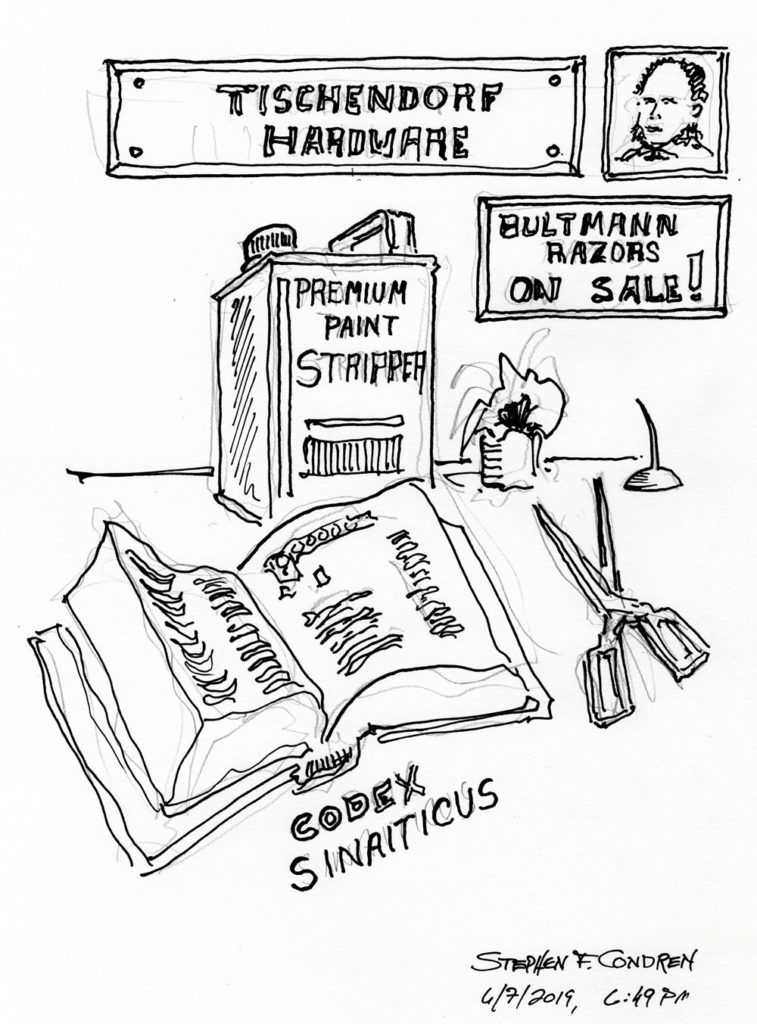 TISCHENDORF
HARDWARE
BULTMANN
RAZORS
ON SALE!
PREMIUM
PAINT
STRIPPER
CODEX
SINAITICUS
STEPHEN F. CONDREN
6/7/2019, 6:49 PM